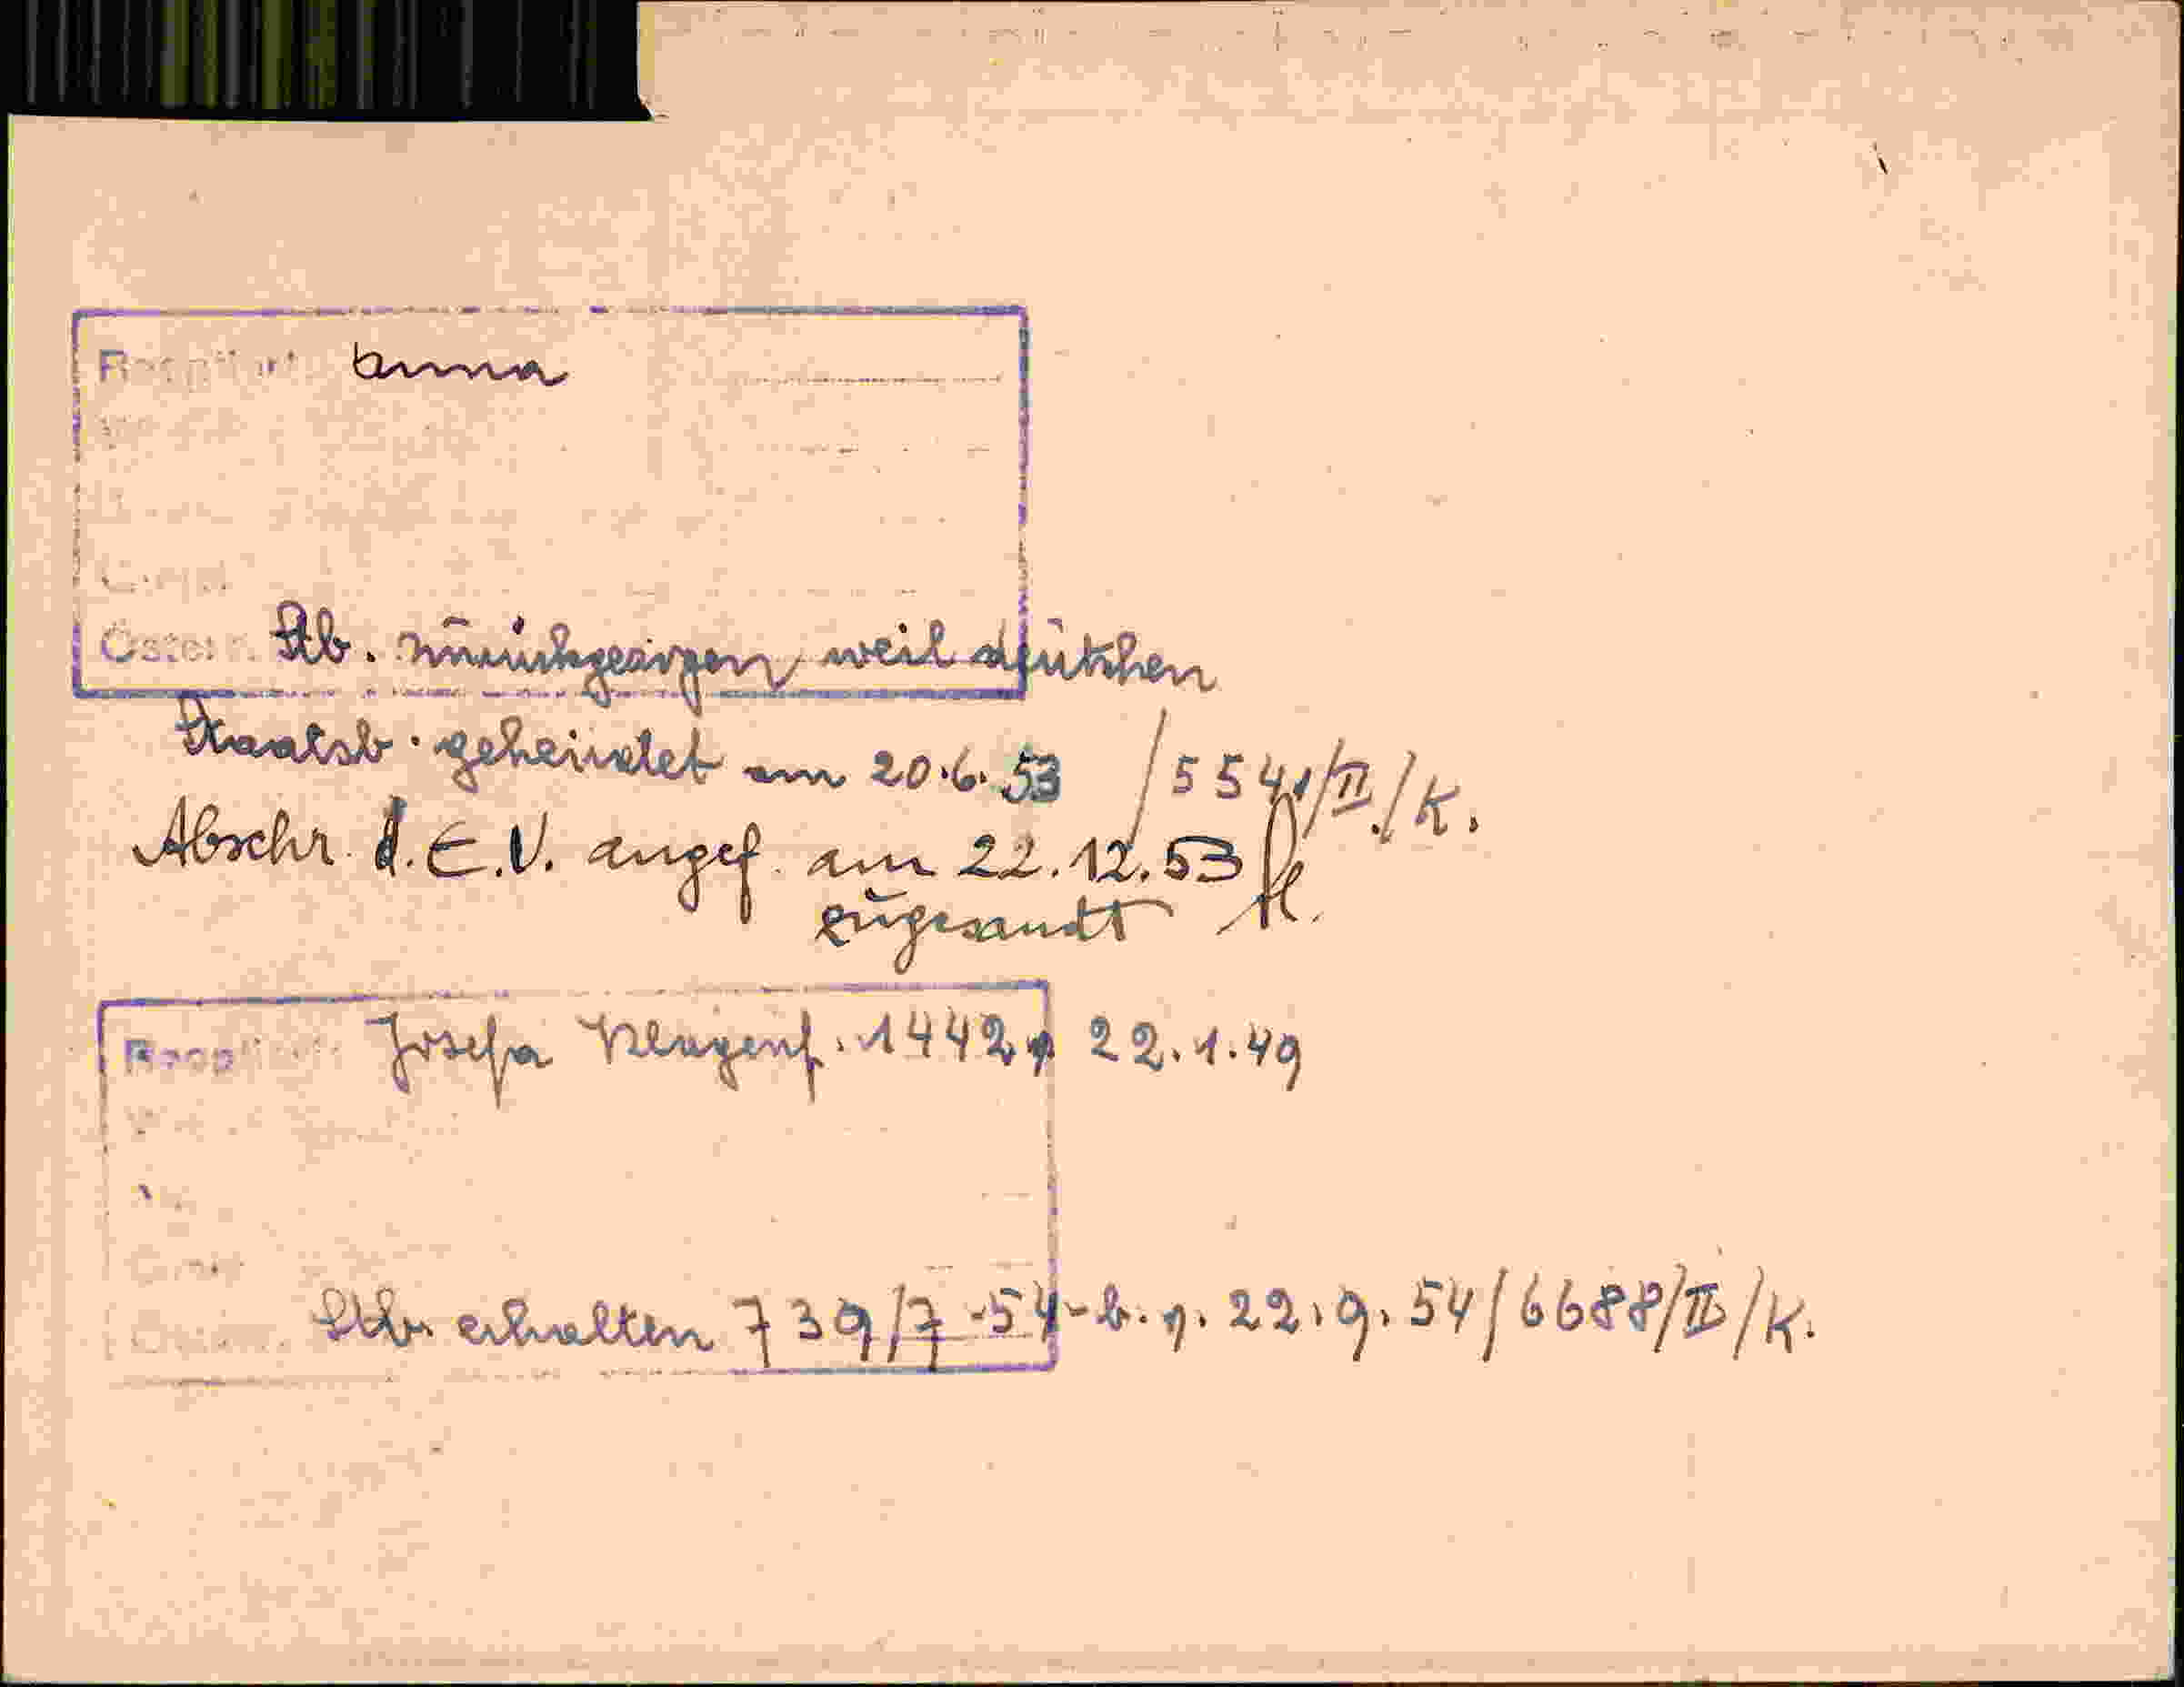 Anna
Stb. zurückgezogen weil deutschen
Staatsb. geheiratet am 20.6.53 /5541/II./K.
Abschr. d. E.V. angef. am 22.12.53
zugesandt
Josefa Klagenf. 1442, 22.1.49
Stb. erhalten 739/7-54-b. v. 22.9.54/6688/II/K.